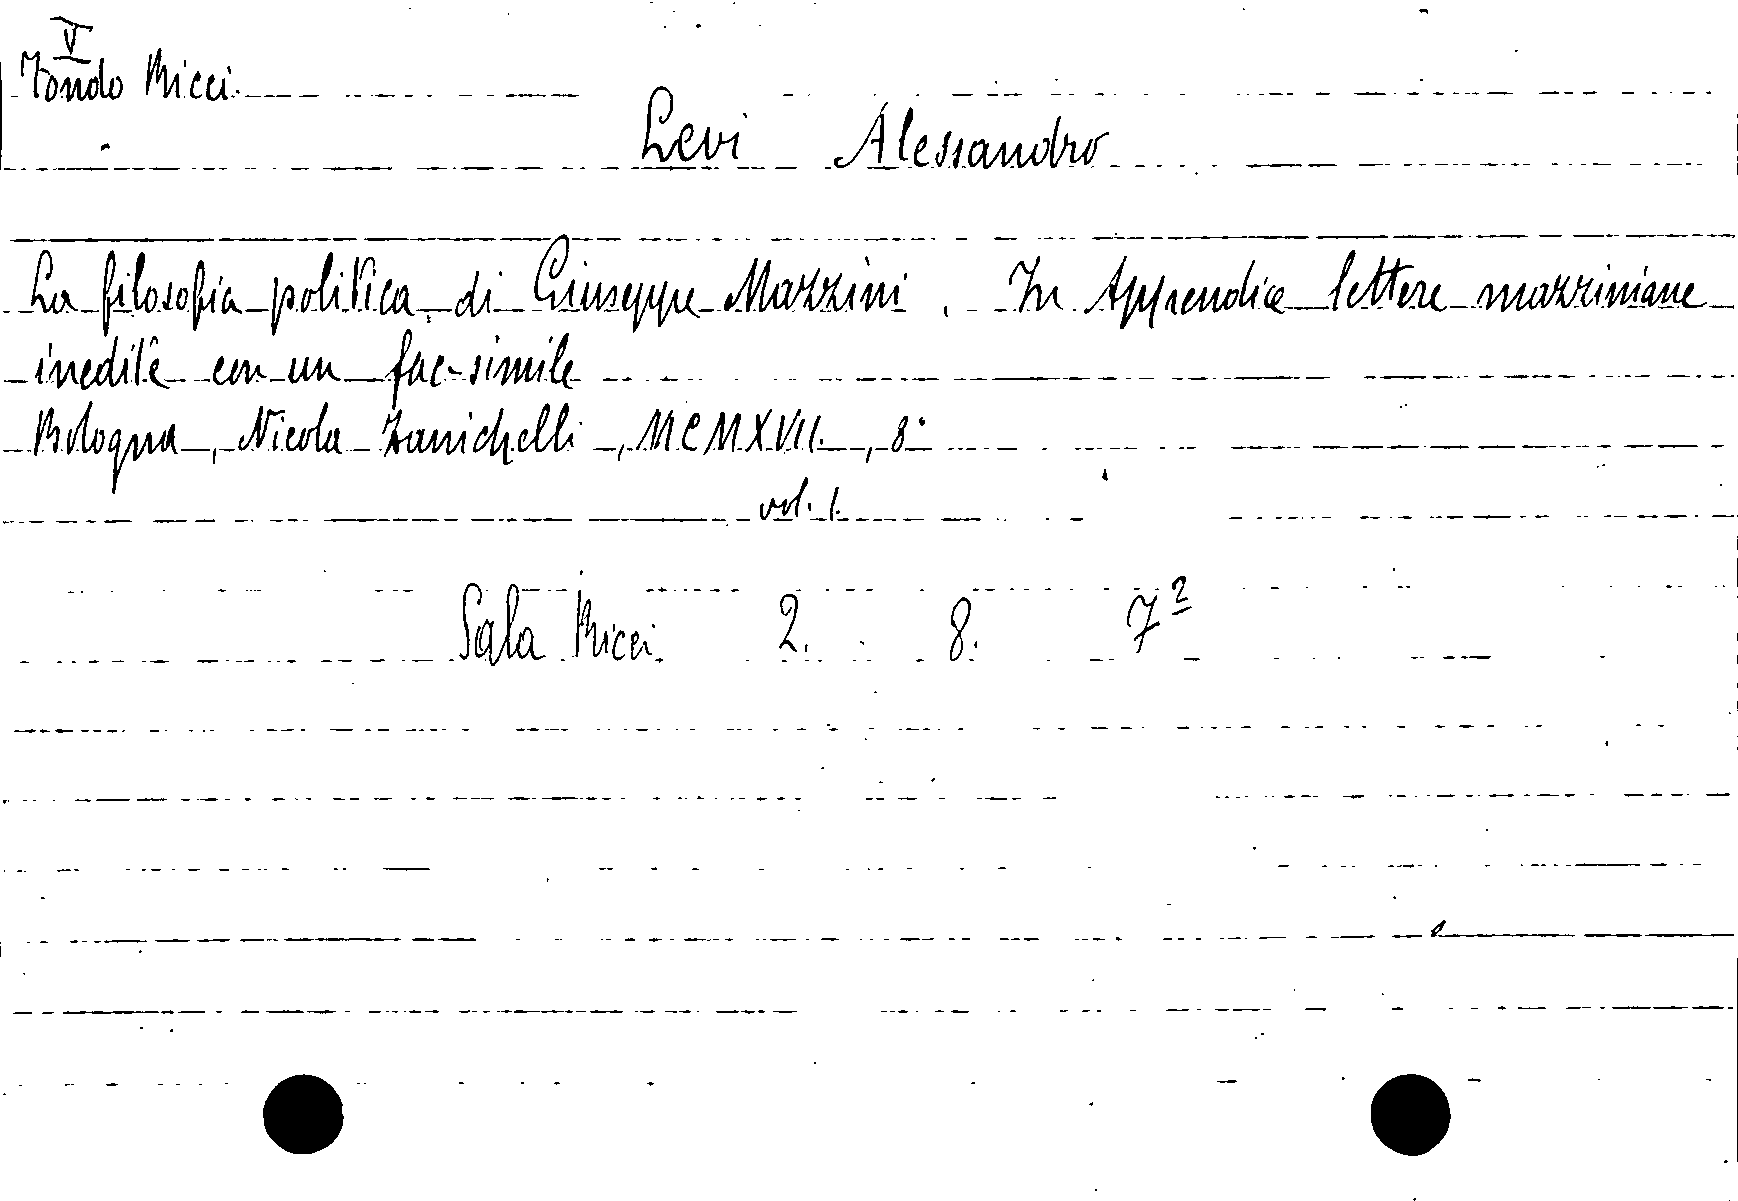 V
Fondo Ricci.
Levi Alessandro
La filosofia politica di Giuseppe Mazzini. In Appendice lettere mazziniane
inedite con un fac-simile
Bologna, Nicola Zanichelli, MCMXVII., 8°
vol. 1.
Sala Ricci. 2. 8. 7²